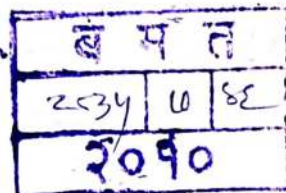 ब म त
२८३५ ७ ४६
२०१०